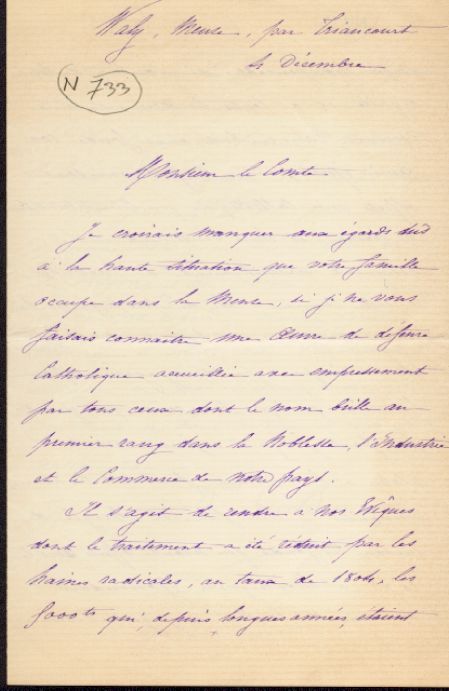 Waly, Meuse, par Triaucourt
4 Désembre
N 733
Monsieur le Comte
Je croirais manquer aux égards dus
à la haute situation que votre famille
occupe dans la Meuse, si je ne vous
faisais connaitre une Œuvre de défense
Catholique accueillie avec empressement
par tous ceux dont le nom brille au
premier rang dans la Noblesse, l'Industrie
et le Commerce de notre pays.
Il s'agit de rendre à nos Evêques
dont le traitement a été réduit par les
haines radicales, au taux de 1804, les
5000 ts qui, depuis longues années, étaient